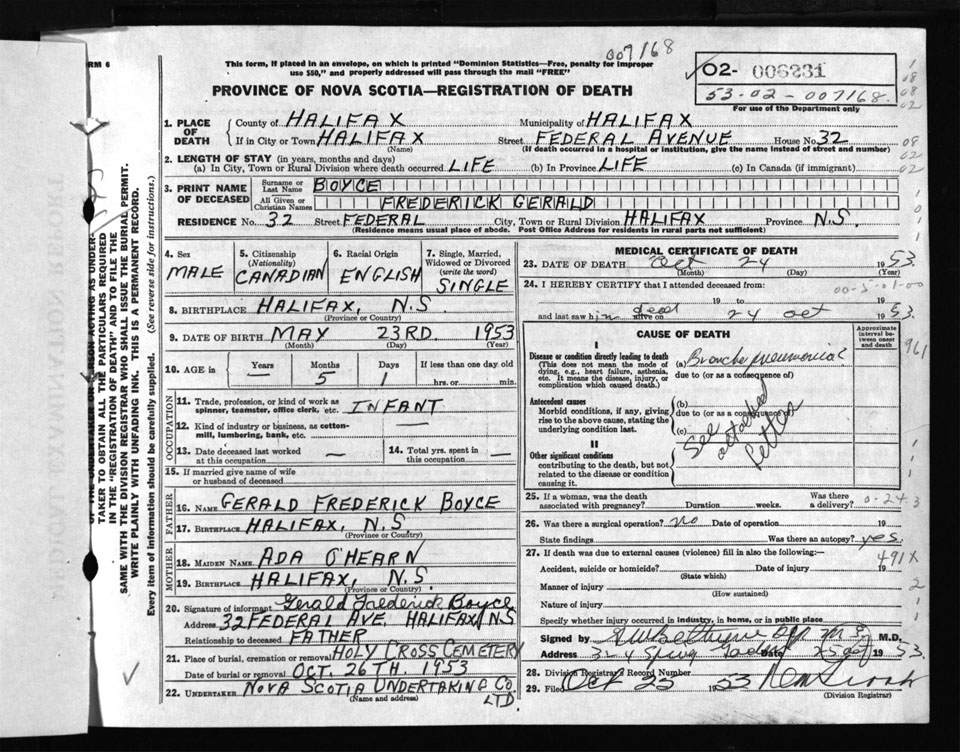 007168
RM 6
This form, if placed in an envelope, on which is printed "Dominion Statistics—Free, penalty for improper
use $50," and properly addressed will pass through the mail "FREE"
PROVINCE OF NOVA SCOTIA—REGISTRATION OF DEATH
02- 006231
53-02-007168.
For use of the Department only
1. PLACE OF DEATH
County of HALIFAX Municipality of HALIFAX
If in City or Town HALIFAX Street FEDERAL AVENUE House No. 32
(Name) (If death occurred in a hospital or institution, give the name instead of street and number)
2. LENGTH OF STAY (in years, months and days)
(a) In City, Town or Rural Division where death occurred LIFE (b) In Province LIFE (c) In Canada (if immigrant)
3. PRINT NAME OF DECEASED
Surname or Last Name BOYCE
All Given or Christian Names FREDERICK GERALD
RESIDENCE No. 32 Street FEDERAL City, Town or Rural Division HALIFAX Province N.S.
(Residence means usual place of abode. Post Office Address for residents in rural parts not sufficient)
4. Sex MALE
5. Citizenship (Nationality) CANADIAN
6. Racial Origin ENGLISH
7. Single, Married, Widowed or Divorced (write the word) SINGLE
8. BIRTHPLACE HALIFAX, N.S
(Province or Country)
9. DATE OF BIRTH MAY 23RD. 1953
(Month) (Day) (Year)
10. AGE in Years — Months 5 Days 1 If less than one day old
hrs. or min.
OCCUPATION
11. Trade, profession, or kind of work as
spinner, teamster, office clerk, etc. INFANT
12. Kind of industry or business, as cotton-
mill, lumbering, bank, etc. —
13. Date deceased last worked
at this occupation —
14. Total yrs. spent in
this occupation —
15. If married give name of wife
or husband of deceased
FATHER
16. NAME GERALD FREDERICK BOYCE
17. BIRTHPLACE HALIFAX, N.S
(Province or Country)
MOTHER
18. MAIDEN NAME ADA O'HEARN
19. BIRTHPLACE HALIFAX, N.S
(Province or Country)
20. Signature of informant Gerald Frederick Boyce
Address 32 FEDERAL AVE. HALIFAX, N.S
Relationship to deceased FATHER
21. Place of burial, cremation or removal HOLY CROSS CEMETERY
Date of burial or removal OCT. 26TH. 1953
22. UNDERTAKER NOVA SCOTIA UNDERTAKING CO
LTD
(Name and address)
MEDICAL CERTIFICATE OF DEATH
23. DATE OF DEATH Oct 24 1953.
(Month) (Day) (Year)
24. I HEREBY CERTIFY that I attended deceased from:
19 to 19
and last saw him dead alive on 24 oct 1953.
CAUSE OF DEATH
Approximate interval between onset and death
I
Disease or condition directly leading to death
(This does not mean the mode of
dying, e.g., heart failure, asthenia,
etc. It means the disease, injury, or
complication which caused death.)
(a) Broncho pneumonia
due to (or as a consequence of)
Antecedent causes
Morbid conditions, if any, giving
rise to the above cause, stating the
underlying condition last.
(b)
due to (or as a consequence of)
(c)
See attached letter
II
Other significant conditions
contributing to the death, but not
related to the disease or condition
causing it.
25. If a woman, was the death
associated with pregnancy? Duration weeks. Was there
a delivery?
26. Was there a surgical operation? no Date of operation 19
State findings Was there an autopsy? yes.
27. If death was due to external causes (violence) fill in also the following:—
491X
Accident, suicide or homicide? Date of injury 19
(State which)
Manner of injury
(How sustained)
Nature of injury
Specify whether injury occurred in industry, in home, or in public place
Signed by M.D.
Address 324 Spring Garden Date 25 oct 1953.
28. Division Registrar's Record Number
29. Filed Oct 25 1953
(Division Registrar)
TAKER TO OBTAIN ALL THE PARTICULARS REQUIRED
IN THE "REGISTRATION OF DEATH" AND TO FILE THE
SAME WITH THE DIVISION REGISTRAR WHO SHALL ISSUE THE BURIAL PERMIT.
WRITE PLAINLY WITH UNFADING INK. THIS IS A PERMANENT RECORD.
Every item of information should be carefully supplied. (See reverse side for instructions.)